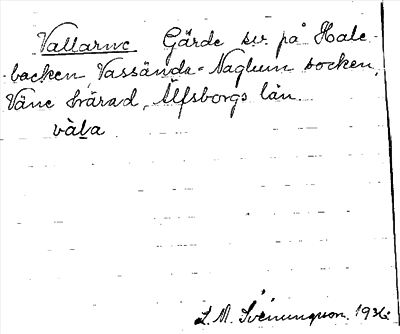 Vallarne Gärde sv. på Hale-
backen, Vassända-Naglum socken,
Väne härad, Älfsborgs län
vàl̠a
S. M. Svenungson. 1936.